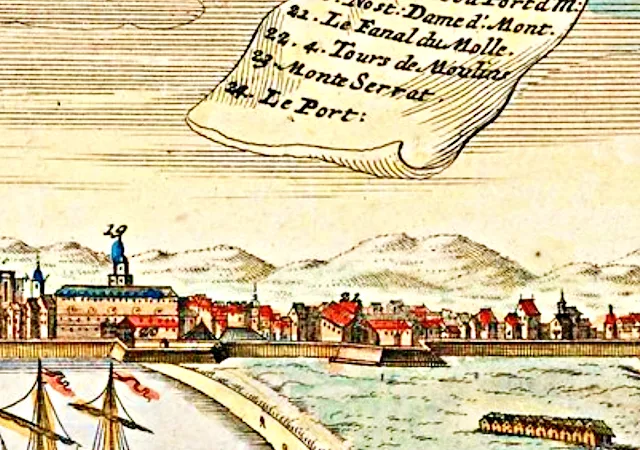 Port d m:
Nost: Dame d'Mont.
21. Le Fanal du Molle.
22. 4. Tours de Moulins
23. Monte Serrat.
24. Le Port:
19